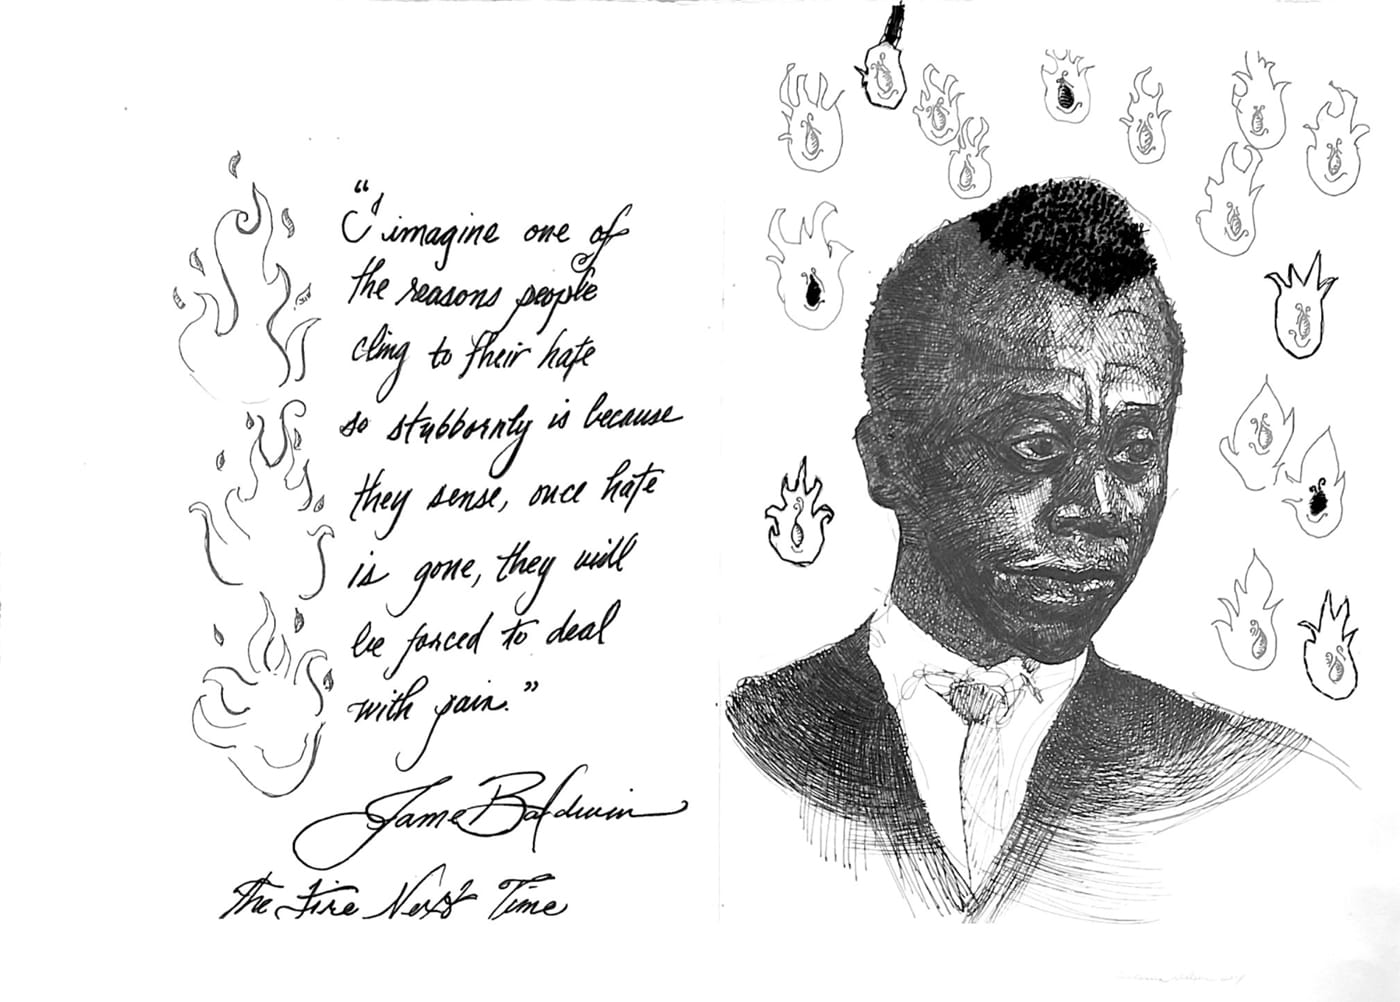 "I imagine one of
the reasons people
cling to their hate
so stubbornly is because
they sense, once hate
is gone, they will
be forced to deal
with pain."
James Baldwin
The Fire Next Time